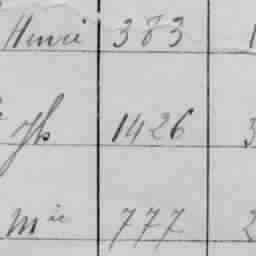 Henri 383 1
Jh 1426 3
Mie 777 2